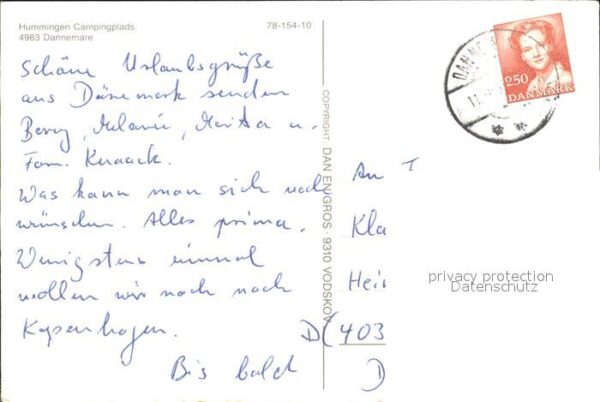 Hummingen Campingplads
4983 Dannemare
78-154-10
Schöne Urlaubsgrüße
aus Dänemark senden
Melanie, Marita u.
Fam. Knaack.
Was kann man sich noch
wünschen. Alles prima.
Wenigstens einmal
wollen wir noch nach
Kopenhagen.
Bis bald
COPYRIGHT: DAN EN GROS · 9310 VODSKOV
DANNE
2.50
DANMARK
An T
Kla
Hei
D(403
D
privacy protection
Datenschutz